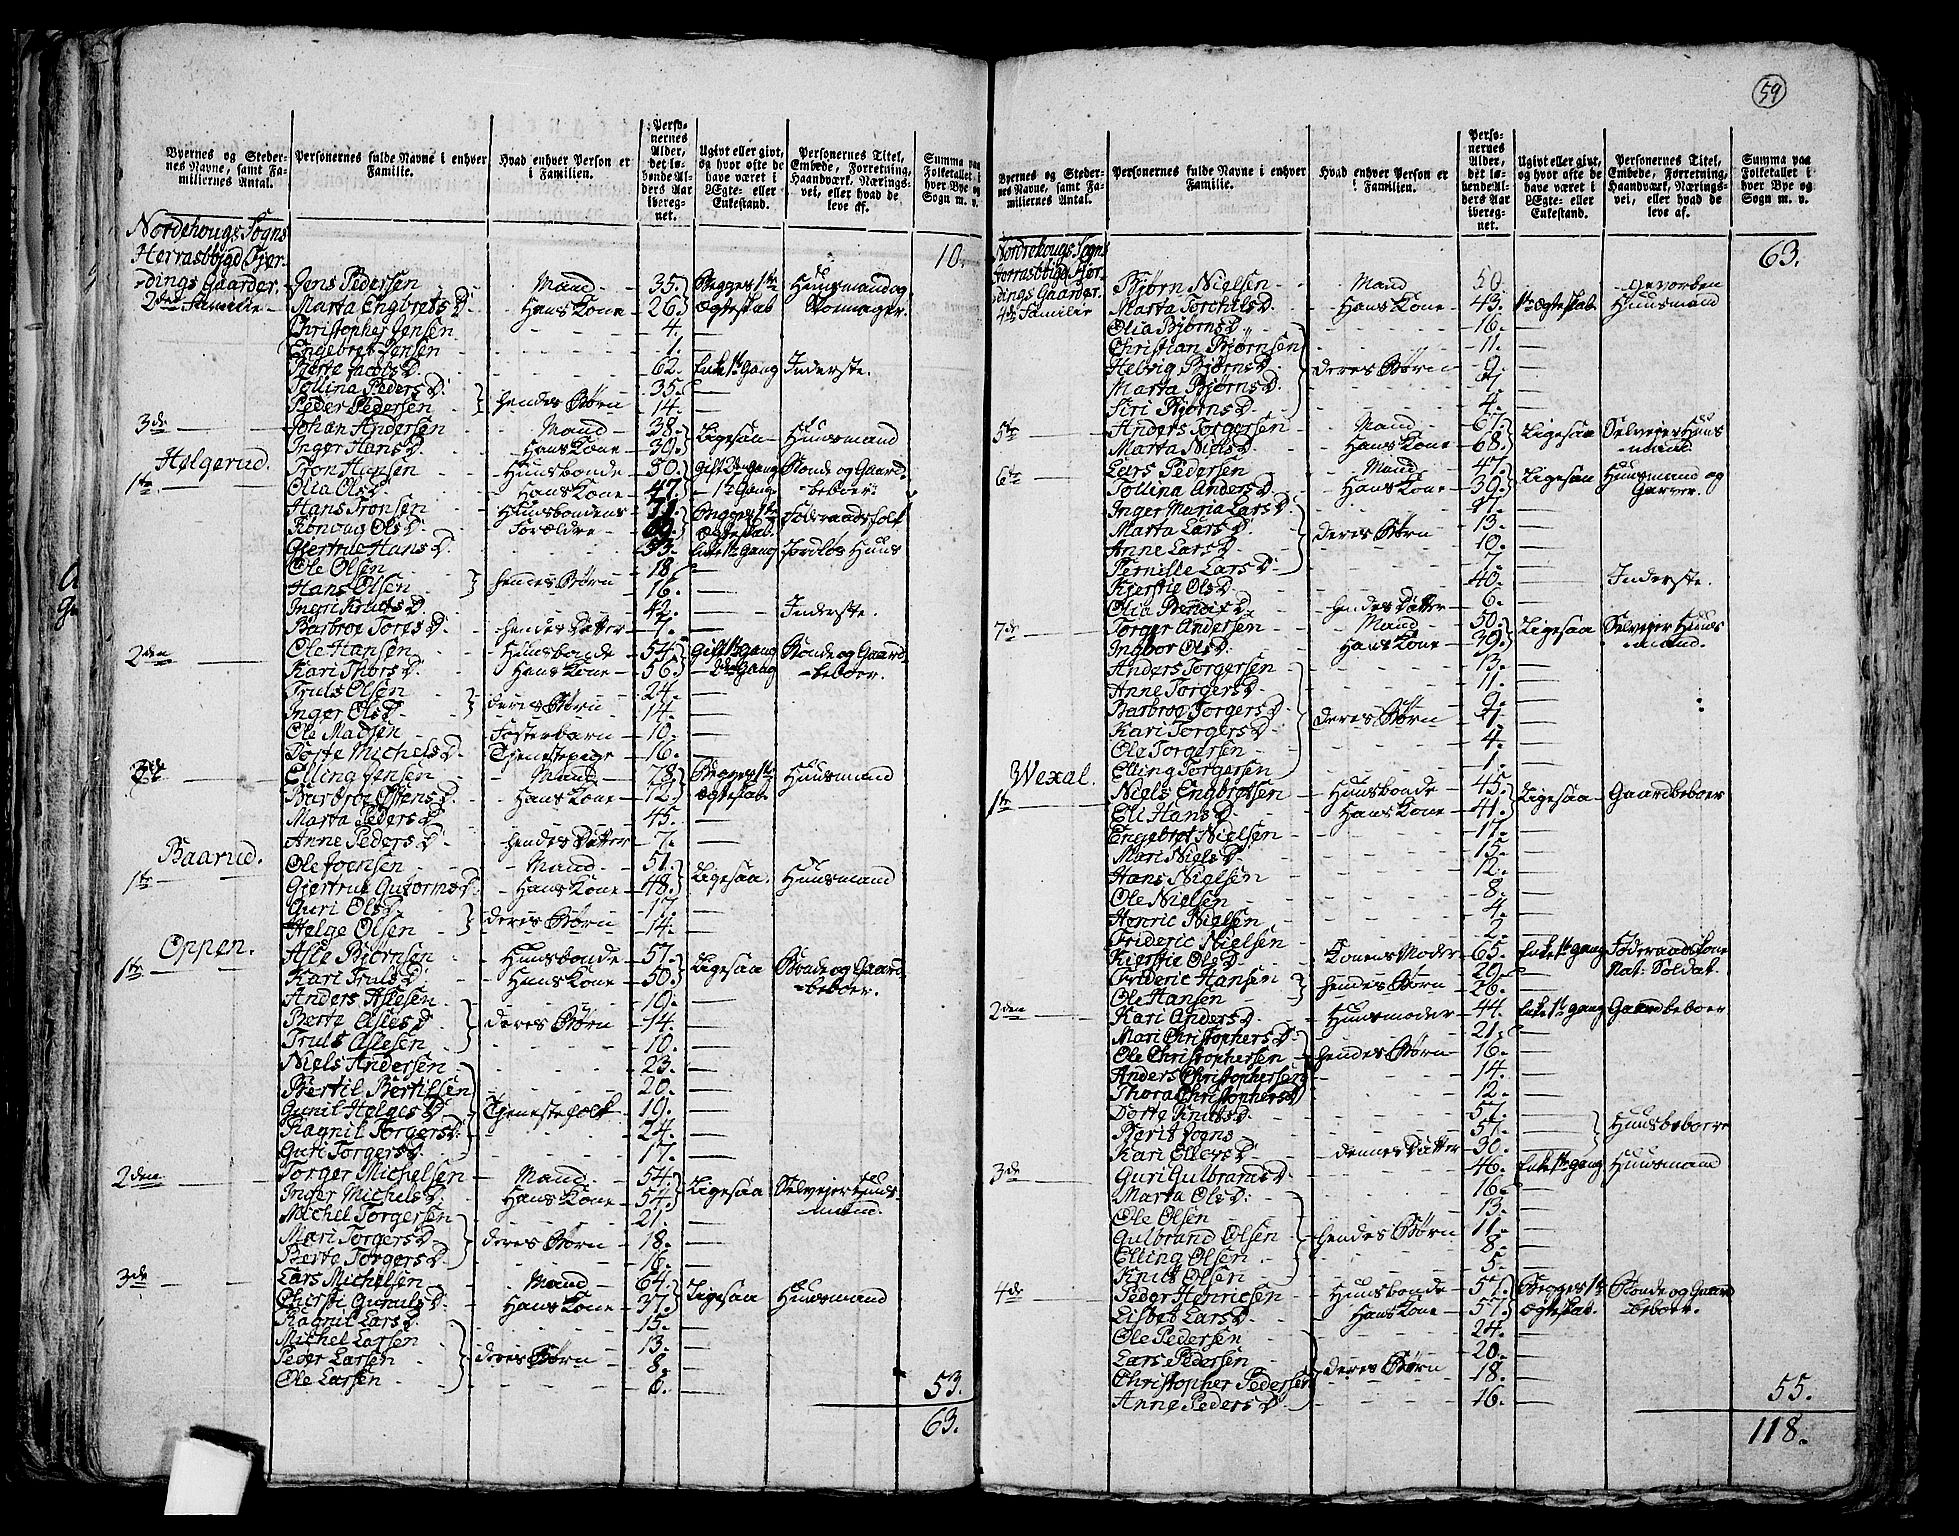 59
Byernes og Steder-
nes Navne, samt Fa-
miliernes Antal.
Personernes fulde Navne i enhver
Familie.
Hvad enhver Person er
i Familien.
Perso-
nernes
Alder,
det lø-
bende Al-
ders Aar
iberegnet.
Ugivt eller givt,
og hvor ofte de
have været i
Ægte- eller
Enkestand.
Personernes Titel,
Embede, Forretning,
Haandværk, Nærings-
vei, eller hvad de
leve af.
Summa paa
Folketallet i
hver Bye og
Sogn m. v.
Nordehougs Sogns
Herrasbygd Hjer- 10.
dings Gaarder. Jens Pedersen Mand 35. Begges 1te Huusmand og
2den Familie Marta Engbrets D. Hans Kone 26. Ægteskab Skomager.
Christopher Jensen 4.
Engebret Jensen 1.
Berte Jacobs D. 62. Enke 1te Gang Inderste.
Tollina Peders D. 35.
Peder Pedersen hendes Børn 14.
3de Johan Andersen Mand 38. Ligesaa Huusmand
Inger Hans D. Hans Kone 39.
Helgerud.
1te Tron Hansen Huusbonde 30. Gift 2. Gang Bonde og Gaard-
Olia Ols D. Hans Kone 47. 1te Gang beboer.
Hans Tronsen Huusbondens 71. Begges 1te Foderaadsfolk
Rønnoug Ols D. Forældre 69. Ægteskab.
Gjertrue Hans D. 53. Enke 1te Gang Jordløs Huus
Ole Olsen 18.
Hans Olsen hendes Børn 16.
Ingri Knuds D. 42. Inderste.
Barbroe Tores D. hendes Datter 7.
2den Ole Hansen Huusbonde 54. Gift 1te Gang Bonde og Gaard-
Kari Thors D. Hans Kone 56. 2den Gang beboer.
Truls Olsen 24.
Inger Ols D. deres Børn 14.
Ole Madsen Fosterbarn 10.
Torte Michels D. Tjenestepige 16.
3de Elling Jensen Mand 78. Begges 1te Huusmand
Barbroe Effens D. Hans Kone 72. Ægteskab
Marta Peders D. 45.
Anne Peders D. hendes Datter 7.
Baarud.
1te Ole Joensen Mand 51. Ligesaa. Huusmand
Gjertrue Gutorms D. Hans Kone 48.
Guri Ols D. 17.
Helge Olsen deres Børn 14.
Oppen.
1te Asle Bjørnsen Huusbonde 57. Ligesaa Bonde og Gaard-
Kari Truls D. Hans Kone 50. beboer.
Anders Aslesen 19.
Berte Asles D. deres Børn 14.
Truls Aslesen 10.
Niels Andersen 23.
Bertil Bertilsen 20.
Gunil Helges D. Tjenestefolk 19.
Ragnil Torgers D. 24.
Guri Torgers D. 17.
2den Torger Michelsen Mand 54. Ligesaa Selveier Huus-
Inger Michels D. Hans Kone 54. mand.
Michel Torgersen 21.
Mari Torgers D. deres Børn 18.
Berte Torgers D. 16.
3de Lars Michelsen Mand 64. Ligesaa Huusmand
Chersti Gunuls D. Hans Kone 37.
Ragnil Lars D. 15.
Michel Larsen 13.
Peder Larsen deres Børn 8.
Ole Larsen 6.
53.
63.
Byernes og Steder-
nes Navne, samt Fa-
miliernes Antal.
Personernes fulde Navne i enhver
Familie.
Hvad enhver Person er
i Familien.
Perso-
nernes
Alder,
det lø-
bende Al-
ders Aar
ibereg-
net.
Ugivt eller givt,
og hvor ofte de
have været i
Ægte- eller
Enkestand.
Personernes Titel,
Embede, Forretning,
Haandværk, Nærings-
vei, eller hvad de
leve af.
Summa paa
Folketallet i
hver Bye og
Sogn m. v.
Nordrehougs Sogns
Herrasbygd Hjer- 63.
dings Gaarder. Bjørn Nielsen Mand 50. Gevorben
4de Familie Marta Torchils D. Hans Kone 43. 1te Ægteskab Huusmand
Olia Bjørns D. 16.
Christian Bjørnsen 11.
Helvig Bjørns D. deres Børn 9.
Marta Bjørns D. 7.
Siri Bjørns D. 4.
5te Anders Torgersen Mand 67. Ligesaa Selveier Huus
Marta Niels D. Hans Kone 68. mand.
6te Lars Pedersen Mand 47. Ligesaa Huusmand og
Tollina Anders D. Hans Kone 39. Garver.
Inger Maria Lars D. 17.
Marta Lars D. deres Børn 13.
Anne Lars D. 10.
Pernille Lars D. 7.
Kjerstie Ols D. 40. Inderste.
Olia D. hendes Datter 6.
7de Torger Andersen Mand 50. Ligesaa Selveier Huus
Ingbor Ols D. Hans Kone 39. mand.
Anders Torgersen 13.
Anne Torgers D. 11.
Barbroe Torgers D. 9.
Kari Torgers D. deres Børn 7.
Ole Torgersen 4.
Elling Torgersen 1.
Wexal.
1te Niels Engbretsen Huusbonde 45. Ligesaa Gaardbeboer
Eli Hans D. Hans Kone 41.
Engebret Nielsen 17.
Mari Niels D. 15.
Hans Nielsen 12.
Ole Nielsen 8.
Henric Nielsen 4.
Frideric Nielsen 2.
Kjerstie Ols D. Konens Moder 65. Enke 1te Gang Føderaadskone
Frideric Hansen 29. Nat: Soldat.
Ole Hansen hendes Børn 26.
2den Kari Anders D. Huusmoder 44. Enke 1te Gang Gaardbeboer
Mari Christophers D. 21.
Ole Christophersen hendes Børn 16.
Anders Christophersen 14.
Thora Christophers D. 12.
Dorte Knuds D. 57.
Berit Joens 57. Huusbeboere
Kari Ellers D. dennes Datter 30.
3de Guri Gulbrands D. 46. Enke 1te Gang Huusmand
Marta Ols D. 16.
Ole Olsen 13.
Gulbrand Olsen hendes Børn 11.
Elling Olsen 8.
Knud Olsen 5.
4de Peder Henricsen Huusbonde 57. Begges 1te Bonde og Gaard
Lisbet Lars D. Hans Kone 57. Ægteskab. beboer.
Ole Pedersen 24.
Lars Pedersen 20.
Christopher Pedersen deres Børn 18.
Anne Peders D. 16.
55.
118.